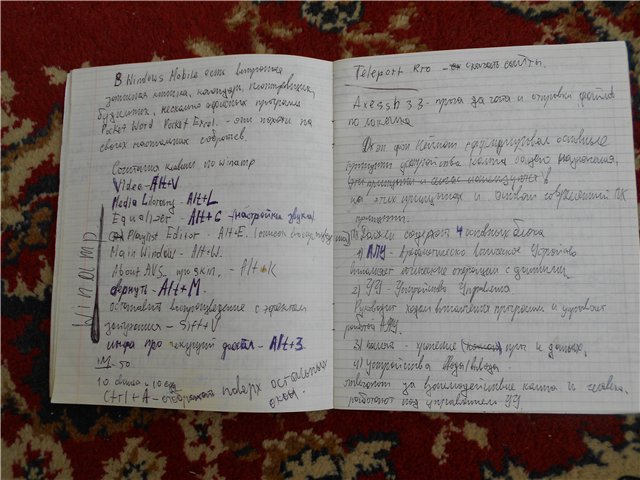 В Windows Mobile есть встроенная
записная книжка, календарь,
будильник, несколько офисных программ
Pocket Word Pocket Excel. - они похожи на
своих настольных собратьев.
Сочетания клавиш по winamp
Video - Alt+V
Media Library - Alt+L
Equalizer - Alt+G - /настройка звука/
Playlist Editor - Alt+E. (список воспроизведения)
Main Window - Alt+W.
About AVS - Alt+K
вернуть - Alt+M.
оставить воспроизведение с эффектом
затухания - Sift+V
инфа про текущий файл - Alt+3
Winamp
1M - 50
Ctrl+A - отображать поверх остальных
окон.
Teleport Pro - скачать сайты.
- прога для чата и отправки файлов
по локалке
Джон фон Нейман сформулировал основные
принципы устройства компа общего назначения,
на этих принципах и основан современный ПК
принципы.
должен содержать 4 основных блока
1) АЛУ - Арифметическо логическое Устройство
выполняет логические операции с данными
2) УУ - Устройство Управления
Руководит ходом выполнения программ и управляет
работой АЛУ.
3) память - хранение прог и данных.
4) устройства Ввода/вывода
отвечают за взаимодействие компа и человека.
работают под управлением УУ.